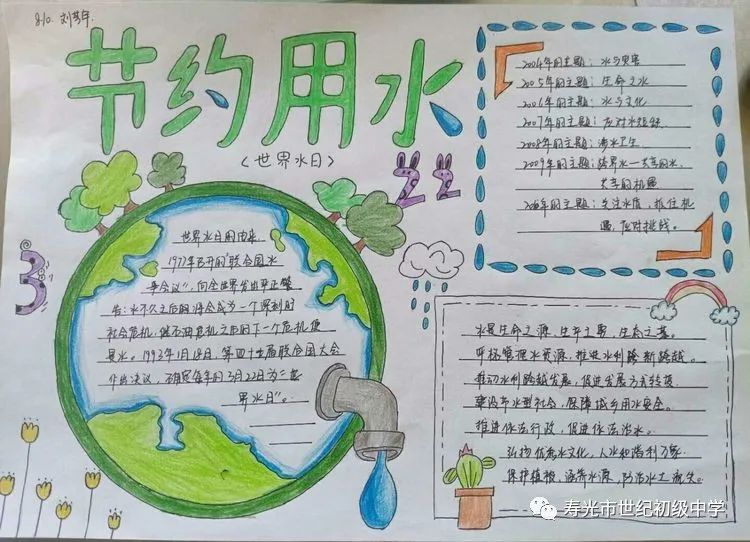 8.10. 刘
节约用水
（世界水日）
3
22
世界水日的由来
1977年召开的"联合国水
事会议"，向全世界发出严正警
告：水不久之后将会成为一个深刻的
社会危机，继石油危机之后的下一个危机便
是水。1993年1月18日，第四十七届联合国大会
作出决议，确定每年的3月22日为"世
界水日"。
2004年的主题：水与灾害
2005年的主题：生命之水
2006年的主题：水与文化
2007年的主题：应对水短缺
2008年的主题：涉水卫生
2009年的主题：跨界水—共享的水、
共享的机遇
年的主题：关注水质，抓住机
遇，应对挑战。
水是生命之源，生产之要，生态之基。
推进水利跨越
推动水利跨越发展，促进发展方式转变
建设节水型社会，保障城乡用水安全。
推进依法行政，促进依法治水。
弘扬优秀水文化，人水和谐利万家
保护植被，涵养水源，防治水土流失。
寿光市世纪初级中学